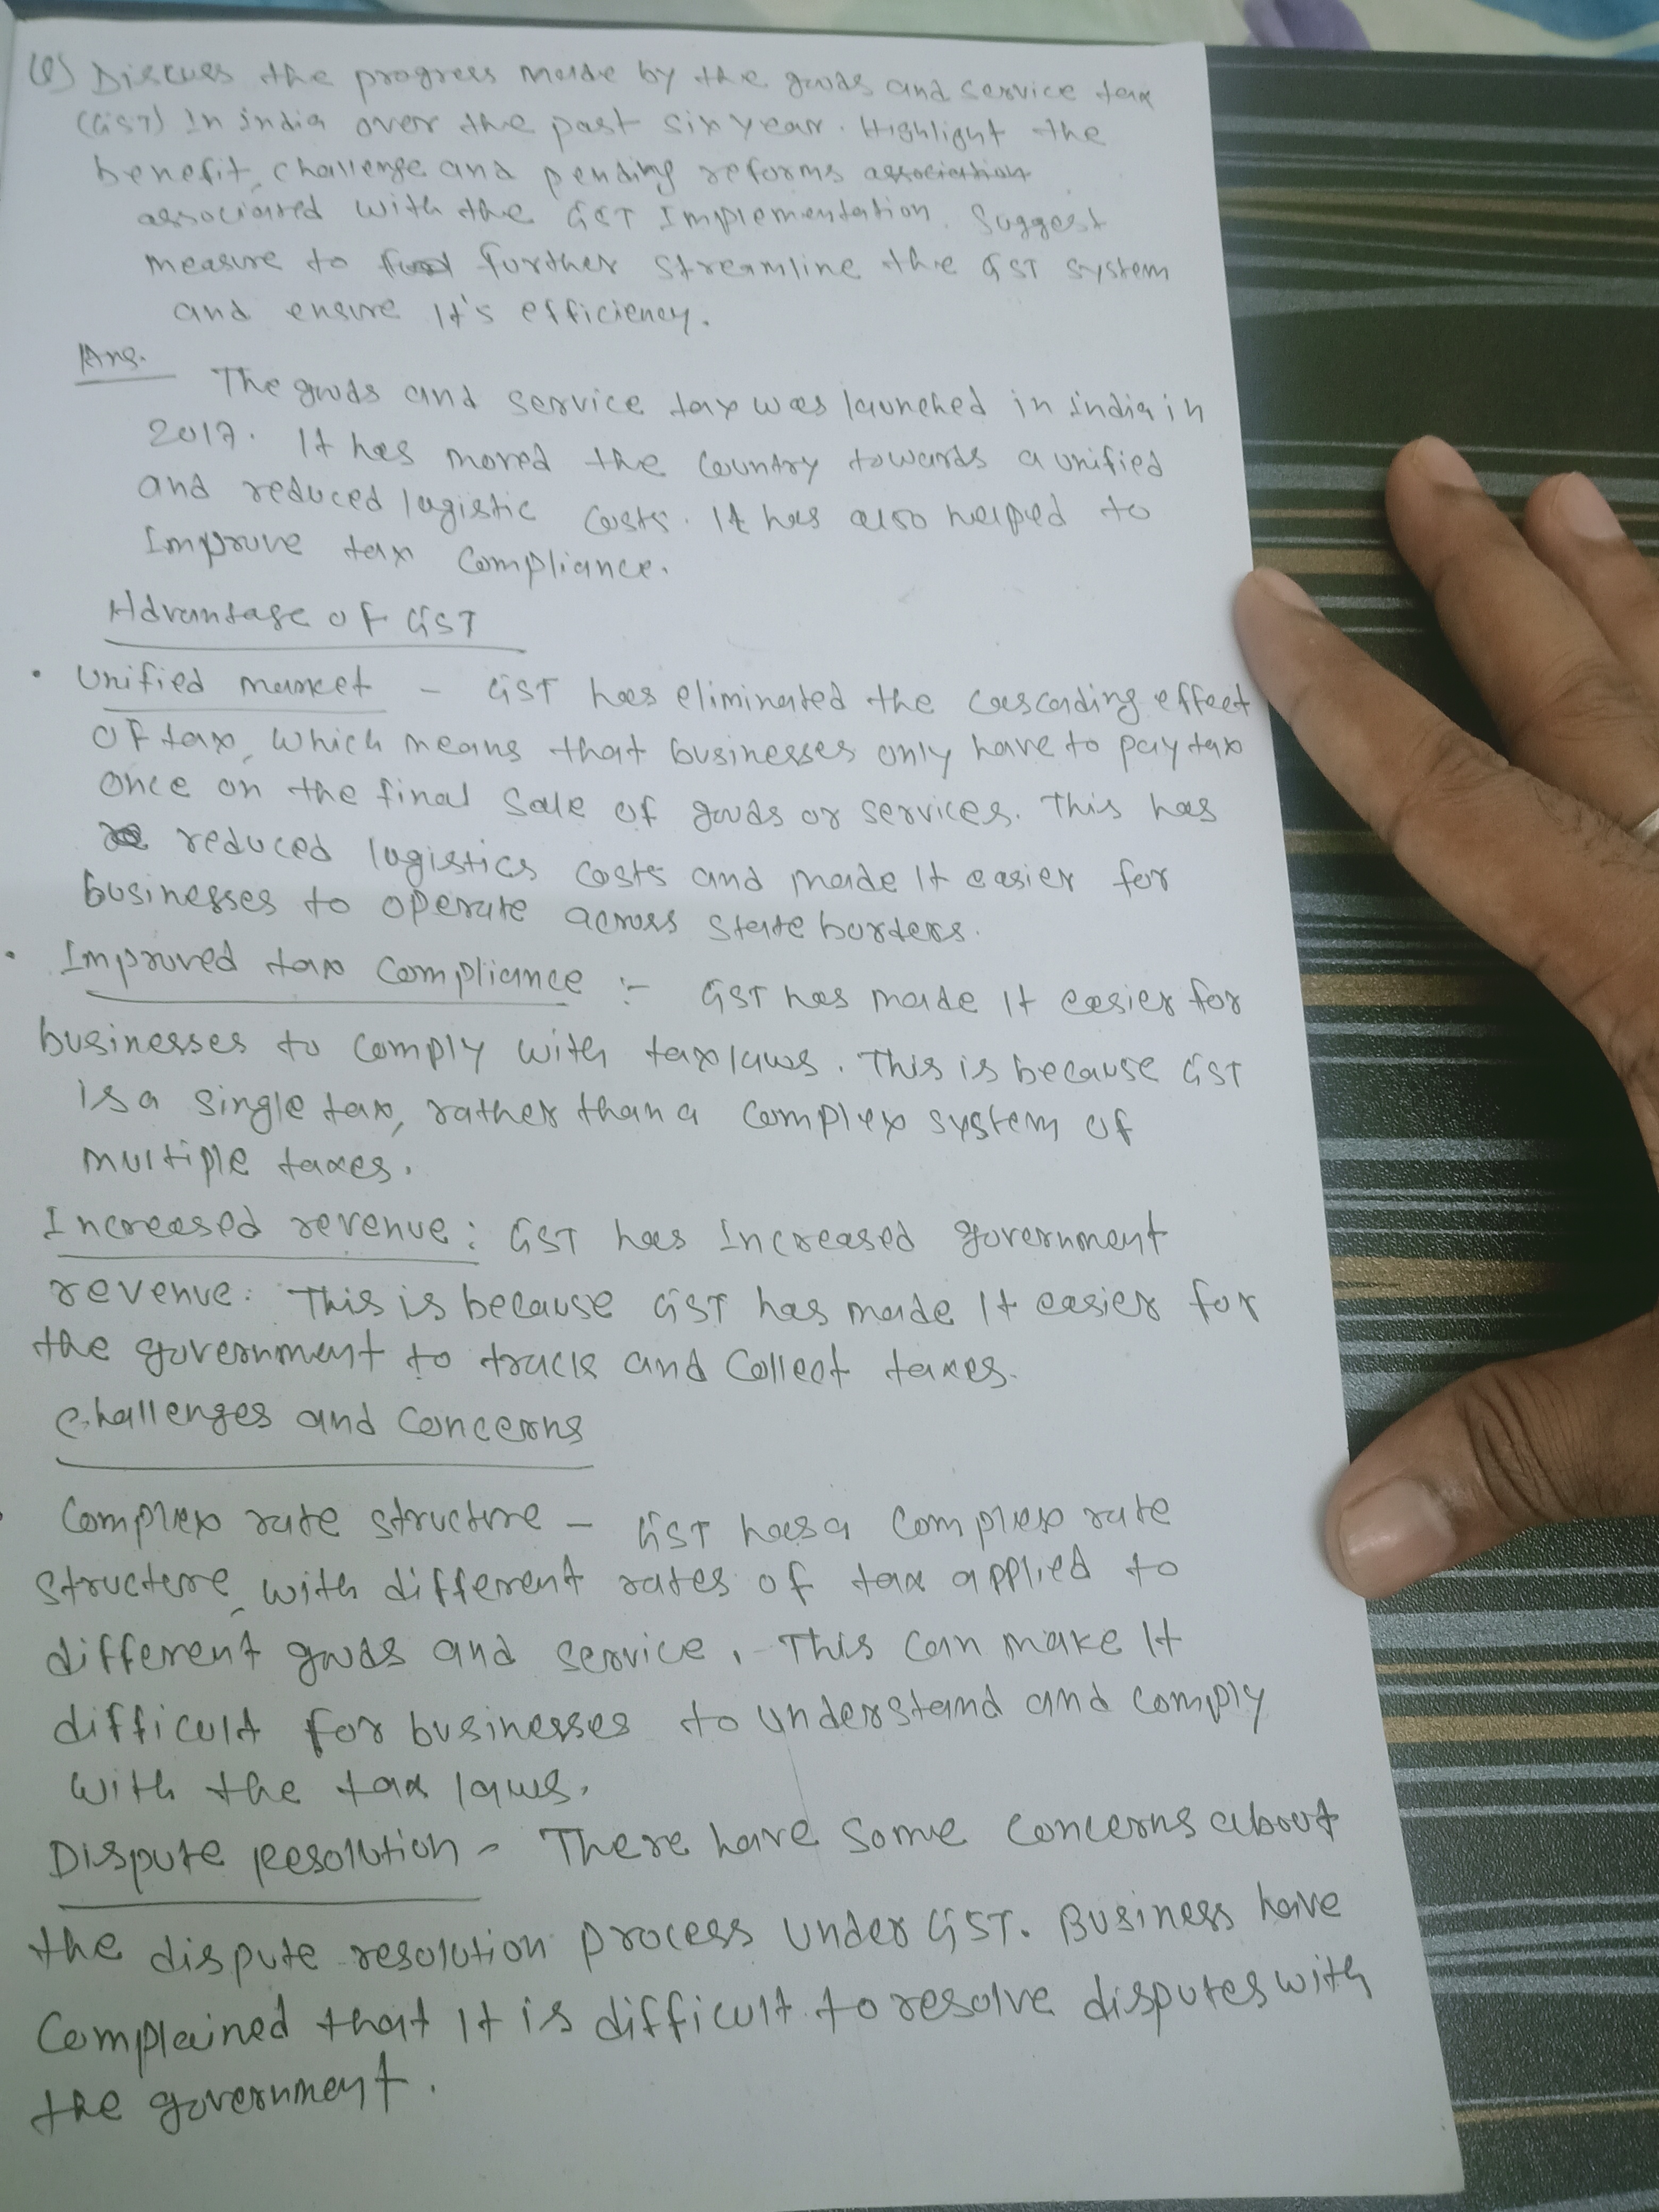 Q) Discuss the progress made by the goods and service tax
(GST) In india over the past six year. Highlight the
benefit, challenge and pending reforms association
associated with the GST Implementation. Suggest
measure to further streamline the GST system
and ensure It's efficiency.
Ans.
The goods and service tax was launched in india in
2017. It has moved the country towards a unified
and reduced logistic costs. It has also helped to
Improve tax compliance.
Advantage of GST
• Unified market - GST has eliminated the cascading effect
of tax, which means that businesses only have to pay tax
once on the final sale of goods or services. This has
reduced logistics costs and made It easier for
businesses to operate across state borders.
• Improved tax compliance :- GST has made It easier for
businesses to comply with tax laws. This is because GST
is a single tax, rather than a complex system of
multiple taxes.
Increased revenue: GST has Increased government
revenue. This is because GST has made It easier for
the government to track and collect taxes.
Challenges and concerns
• Complex rate structure - GST has a complex rate
structure, with different rates of tax applied to
different goods and service. This can make It
difficult for businesses to understand and comply
with the tax laws.
Dispute Resolution - There have some concerns about
the dispute resolution process under GST. Business have
complained that It is difficult to resolve disputes with
the government.